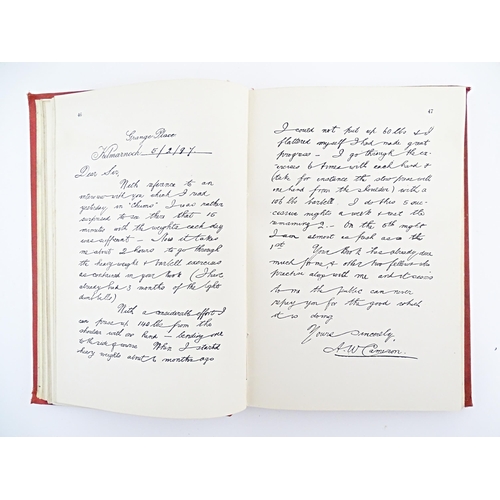 46
Grange Place
Kilmarnock 5/2/97
Dear Sir,
With reference to an
interview with you which I read
yesterday in "Chums" I was rather
surprised to see there that 15
minutes with the weights each day
was sufficient – Now it takes
me about 2 hours to go through
the heavy weight & barbell exercises
as enclosed in your book (I have
already had 3 months of the light
dumb bells)
With a considerable effort I
can press up 140 lbs from the
shoulder with one hand – bending one
When I started
heavy weights about 6 months ago
47
I could not put up 60 lbs & I
flattered myself I had made great
progress – I go through the ex-
ercises 6 times with each hand &
take for instance the slow press with
one hand from the shoulder) with a
106 lbs barbell. I do this 5 suc-
cessive nights a week & rest the
remaining 2. – On the 5th night
I am almost as fresh as the
1st
Your book has already done
much for me & other two fellows who
practise along with me and it seems
to me the public can never
repay you for the good which
it is doing
Yours Sincerely,
A. W. Cameron.